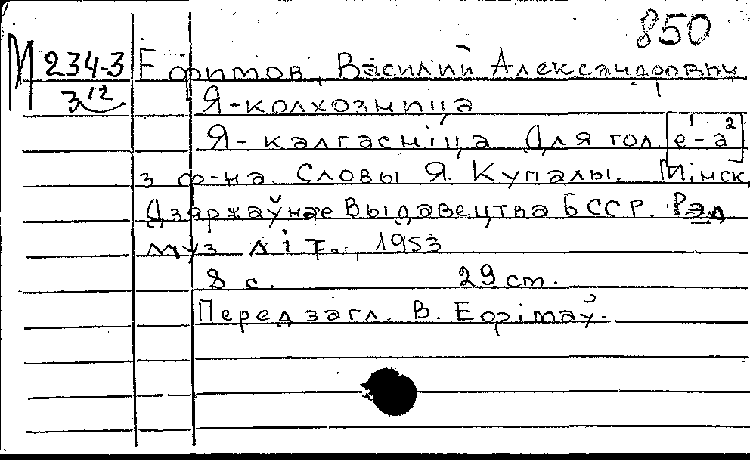 850
М 234-3 Ефимов, Василий Александрович
3¹² Я-колхозница
Я-калгасніца. Для гол. [e¹-a²]
з ф-на. Словы Я. Купалы. Мінск,
Дзяржаўнае Выдавецтва БССР. Рэд
муз. літ., 1953
8 с. 29 cm.
Перед загл. В. Ефімаў.